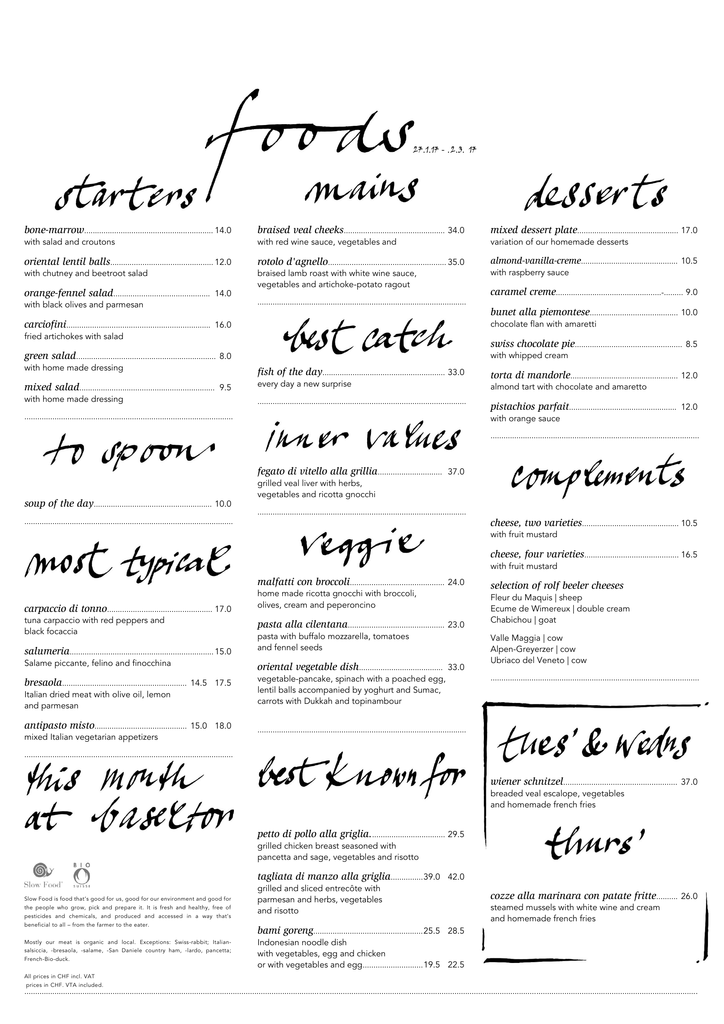 foods
27.1.17 - .2.3. 17
starters
bone-marrow 14.0
with salad and croutons
oriental lentil balls 12.0
with chutney and beetroot salad
orange-fennel salad 14.0
with black olives and parmesan
carciofini 16.0
fried artichokes with salad
green salad 8.0
with home made dressing
mixed salad 9.5
with home made dressing
to spoon
soup of the day 10.0
most typical
carpaccio di tonno 17.0
tuna carpaccio with red peppers and
black focaccia
salumeria 15.0
Salame piccante, felino and finocchina
bresaola 14.5 17.5
Italian dried meat with olive oil, lemon
and parmesan
antipasto misto 15.0 18.0
mixed Italian vegetarian appetizers
this month
at baseltor
Slow Food
BIO
SUISSE
Slow Food is food that's good for us, good for our environment and good for
the people who grow, pick and prepare it. It is fresh and healthy, free of
pesticides and chemicals, and produced and accessed in a way that's
beneficial to all – from the farmer to the eater.
Mostly our meat is organic and local. Exceptions: Swiss-rabbit; Italian-
salsiccia, -bresaola, -salame, -San Daniele country ham, -lardo, pancetta;
French-Bio-duck.
All prices in CHF incl. VAT
prices in CHF. VTA included.
mains
braised veal cheeks 34.0
with red wine sauce, vegetables and
rotolo d'agnello 35.0
braised lamb roast with white wine sauce,
vegetables and artichoke-potato ragout
best catch
fish of the day 33.0
every day a new surprise
inner values
fegato di vitello alla grillia 37.0
grilled veal liver with herbs,
vegetables and ricotta gnocchi
veggie
malfatti con broccoli 24.0
home made ricotta gnocchi with broccoli,
olives, cream and peperoncino
pasta alla cilentana 23.0
pasta with buffalo mozzarella, tomatoes
and fennel seeds
oriental vegetable dish 33.0
vegetable-pancake, spinach with a poached egg,
lentil balls accompanied by yoghurt and Sumac,
carrots with Dukkah and topinambour
best known for
petto di pollo alla griglia. 29.5
grilled chicken breast seasoned with
pancetta and sage, vegetables and risotto
tagliata di manzo alla griglia 39.0 42.0
grilled and sliced entrecôte with
parmesan and herbs, vegetables
and risotto
bami goreng 25.5 28.5
Indonesian noodle dish
with vegetables, egg and chicken
or with vegetables and egg 19.5 22.5
desserts
mixed dessert plate 17.0
variation of our homemade desserts
almond-vanilla-creme 10.5
with raspberry sauce
caramel creme 9.0
bunet alla piemontese 10.0
chocolate flan with amaretti
swiss chocolate pie 8.5
with whipped cream
torta di mandorle 12.0
almond tart with chocolate and amaretto
pistachios parfait 12.0
with orange sauce
complements
cheese, two varieties 10.5
with fruit mustard
cheese, four varieties 16.5
with fruit mustard
selection of rolf beeler cheeses
Fleur du Maquis | sheep
Ecume de Wimereux | double cream
Chabichou | goat
Valle Maggia | cow
Alpen-Greyerzer | cow
Ubriaco del Veneto | cow
tues' & wedns
wiener schnitzel 37.0
breaded veal escalope, vegetables
and homemade french fries
thurs'
cozze alla marinara con patate fritte 26.0
steamed mussels with white wine and cream
and homemade french fries